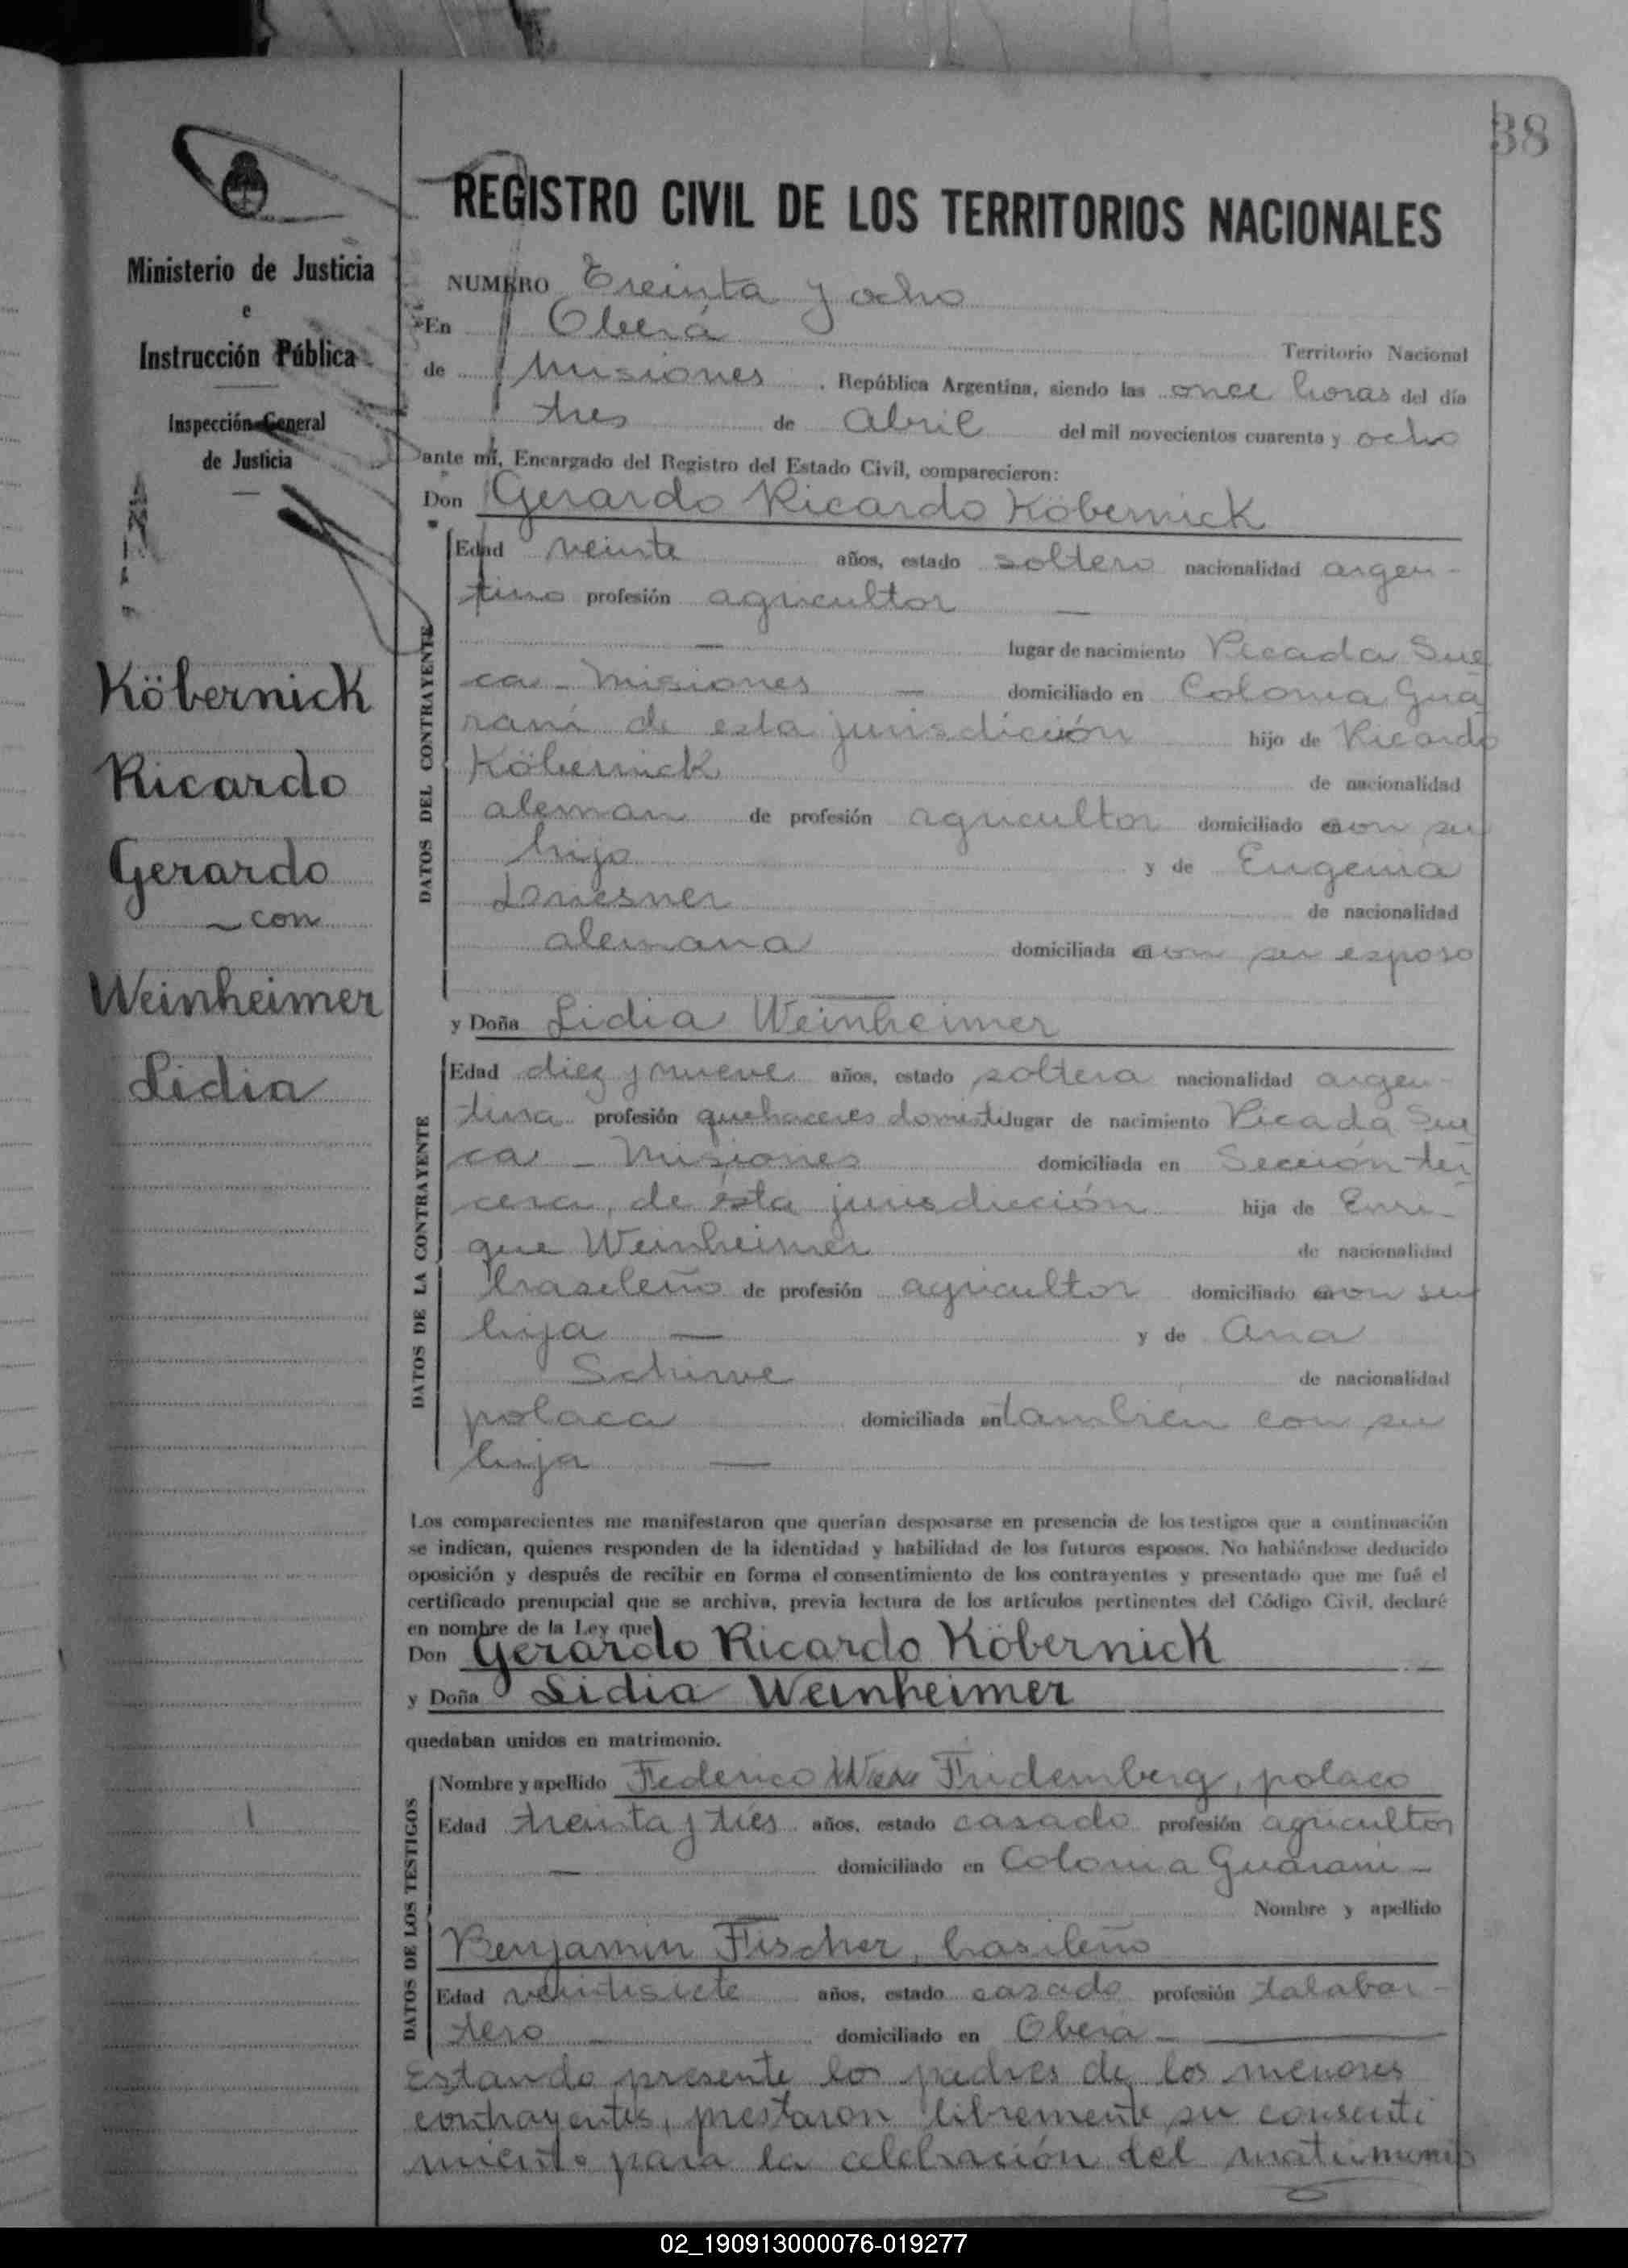 38
REGISTRO CIVIL DE LOS TERRITORIOS NACIONALES
Ministerio de Justicia
e
Instrucción Pública
Inspección General
de Justicia
Köbernick
Ricardo
Gerardo
con
Weinheimer
Lidia
NUMERO Treinta y ocho
En Oberá
Territorio Nacional
de Misiones, República Argentina, siendo las once horas del día
tres de Abril del mil novecientos cuarenta y ocho
ante mí, Encargado del Registro del Estado Civil, comparecieron:
Don Gerardo Ricardo Köbernick
DATOS DEL CONTRAYENTE
Edad veinte años, estado soltero nacionalidad argen-
tino profesión agricultor —
— lugar de nacimiento Picada Sue
ca - Misiones — domiciliado en Colonia Gua
raní de esta jurisdicción hijo de Ricardo
Köbernick de nacionalidad
aleman de profesión agricultor domiciliado con su
hijo y de Eugenia
de nacionalidad
alemana domiciliada con su esposo
y Doña Lidia Weinheimer
DATOS DE LA CONTRAYENTE
Edad diez y nueve años, estado soltera nacionalidad argen-
tina profesión quehaceres domésti lugar de nacimiento Picada Sue
ca - Misiones domiciliada en Sección ter
cera, de ésta jurisdicción hija de Enri-
que Weinheimer de nacionalidad
brasileño de profesión agricultor domiciliado con su
hija — y de Ana
de nacionalidad
polaca domiciliada en tambien con su
hija —
Los comparecientes me manifestaron que querían desposarse en presencia de los testigos que a continuación
se indican, quienes responden de la identidad y habilidad de los futuros esposos. No habiéndose deducido
oposición y después de recibir en forma el consentimiento de los contrayentes y presentado que me fué el
certificado prenupcial que se archiva, previa lectura de los artículos pertinentes del Código Civil, declaré
en nombre de la Ley que
Don Gerardo Ricardo Köbernick
y Doña Lidia Weinheimer
quedaban unidos en matrimonio.
DATOS DE LOS TESTIGOS
Nombre y apellido Federico Fridemberg, polaco
Edad treinta y tres años, estado casado profesión agricultor
— domiciliado en Colonia Guarani -
Nombre y apellido
Benjamin Fischer, brasileño
Edad veintisiete años, estado casado profesión talabar-
tero — domiciliado en Oberá —
Estando presente los padres de los menores
contrayentes, prestaron libremente su consenti
miento para la celebración del matrimonio
02_190913000076-019277